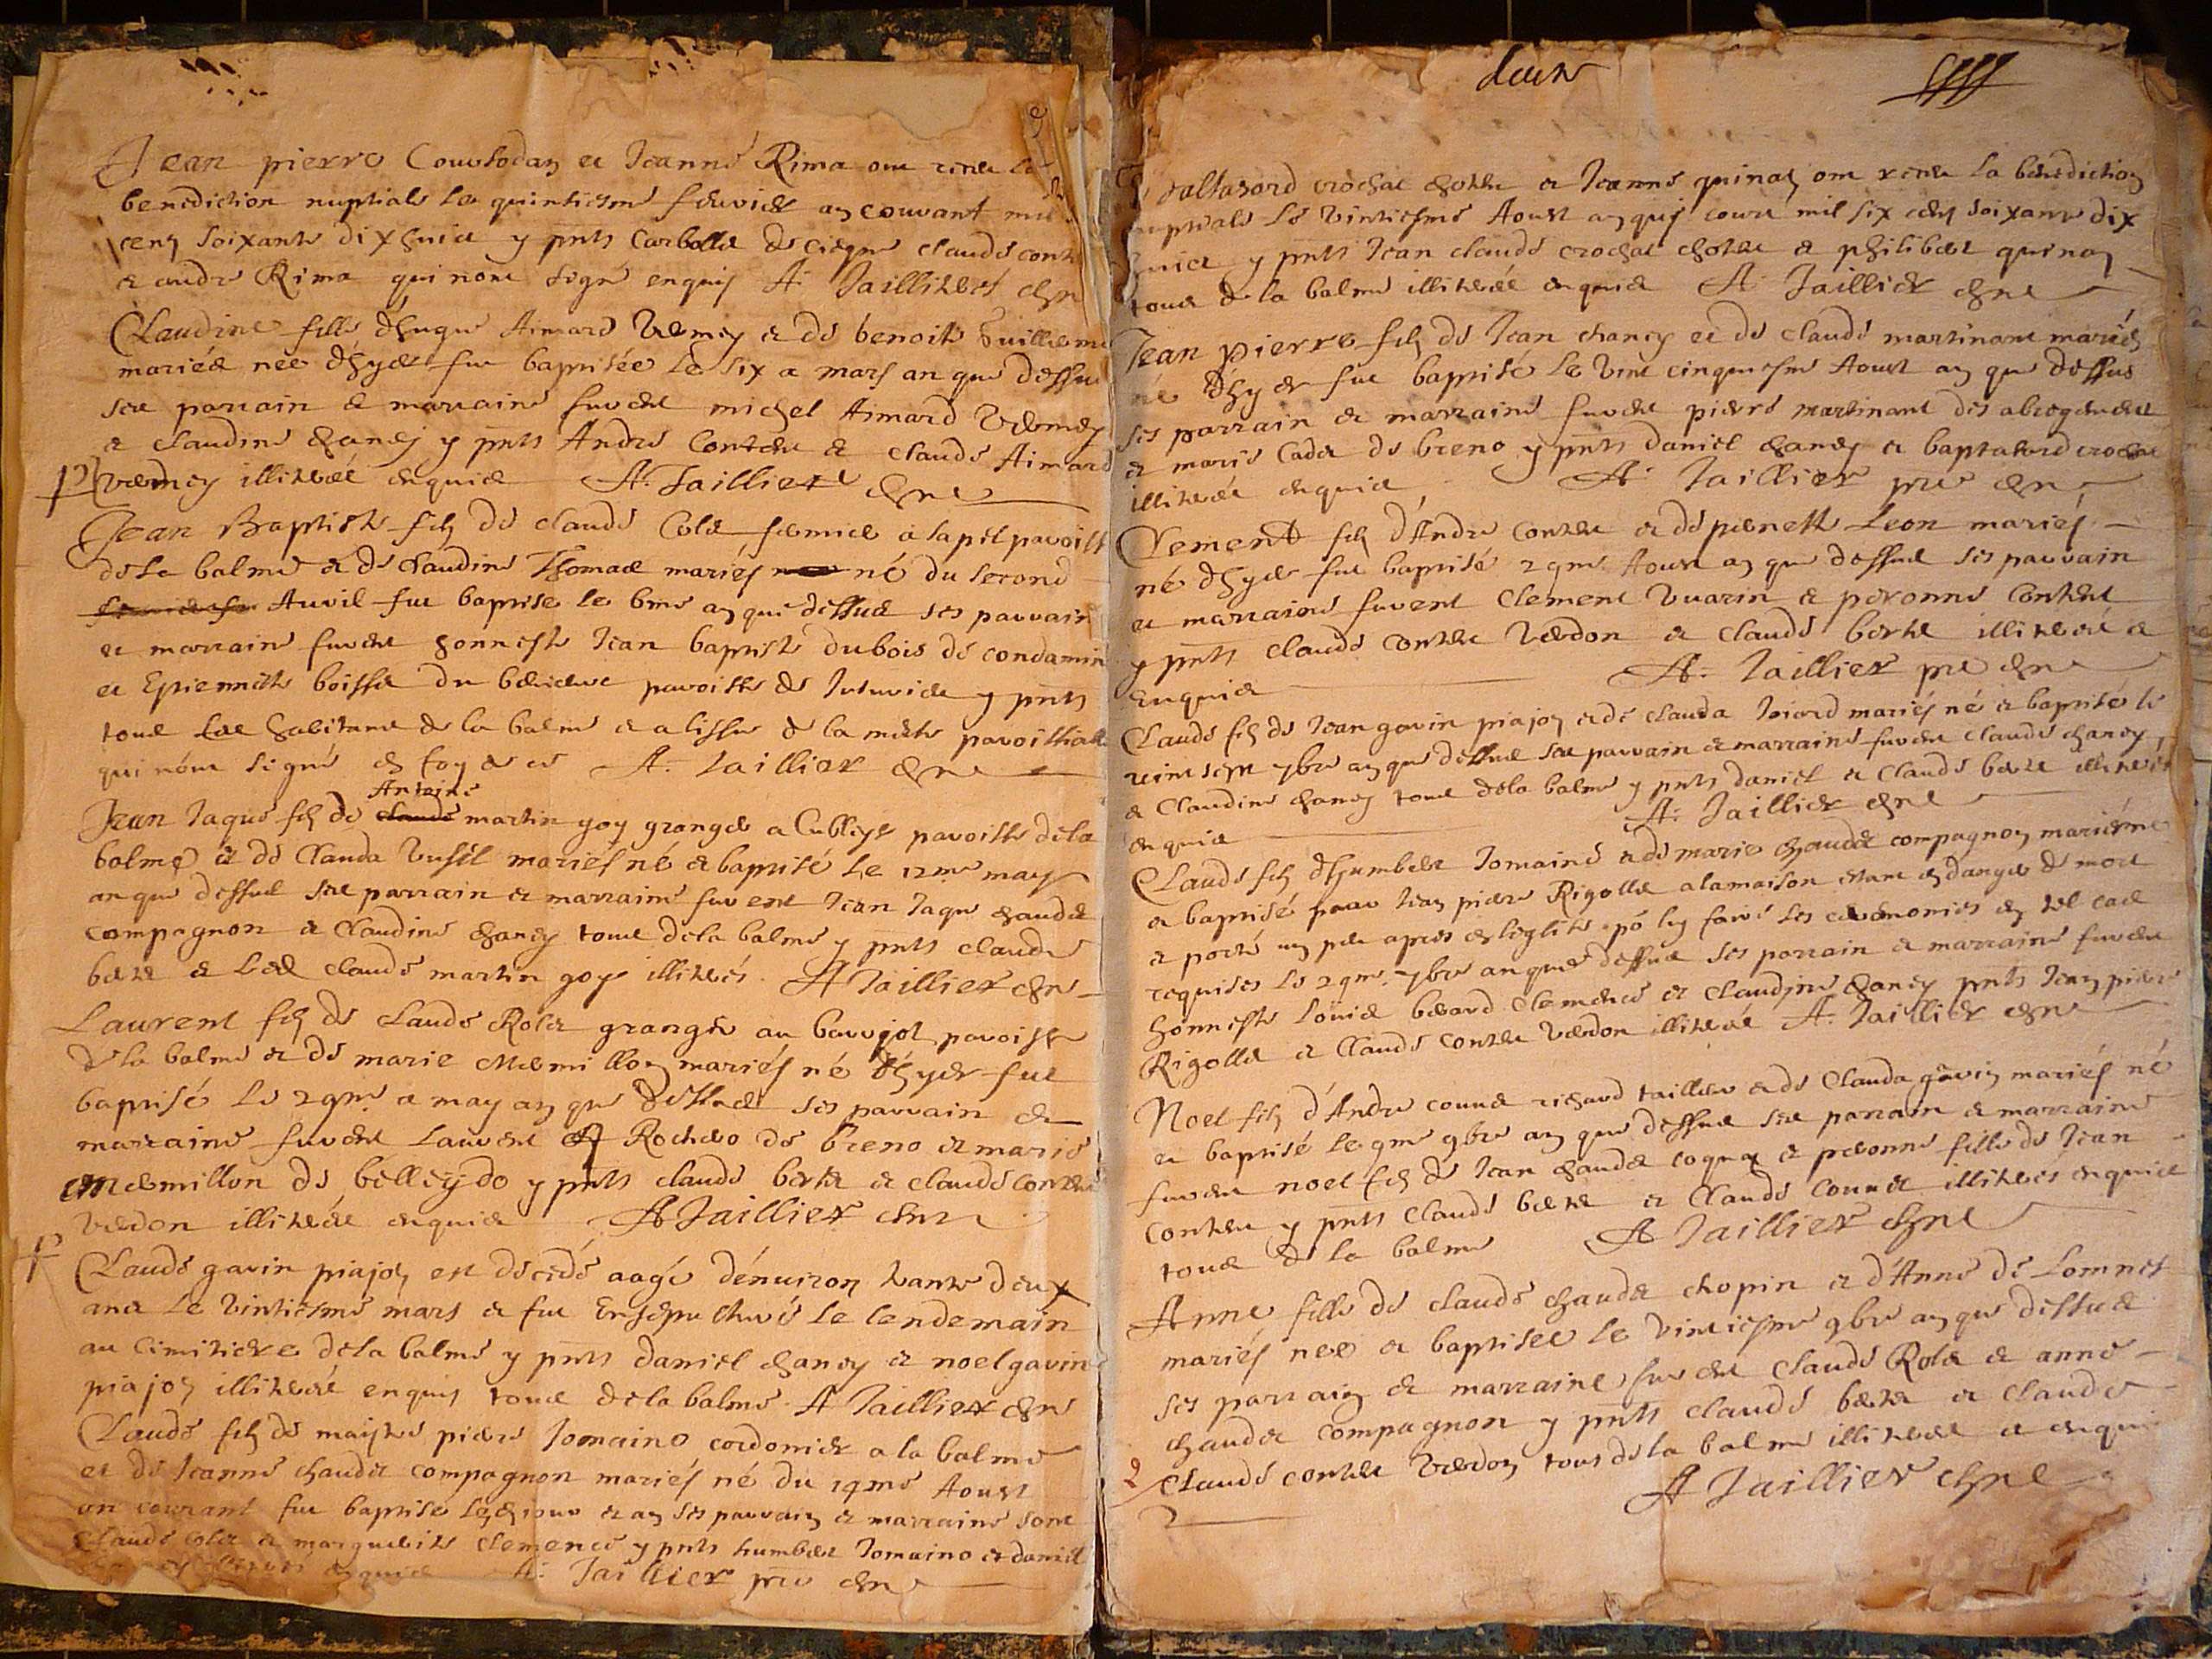 Jean pierre Coursodan et Jeanne Rima ont receu la
benediction nuptiale le quinziesme febvrier an courant mil
cens soixante dix huict y pnts Carbollet de ciegne claude contet
et andre Rima qui nont signe enquis A. Jaillieres chne
Claudine fille d'hugue Aimard Vermey et de benoite Guillerme
mariés née d'hyer fut baptisée le six a mars an que dessus
ses parrain et marraine furent michel Aimard Vermey
et claudine chaney y pnts Andre Contet et claude Aimard
vermey illiterés enquis A. Jaillier chne
Jean Baptiste filz de claude Colet fermier a la pil paroisse
de la balme et de claudine Thomas mariés né du second
Avril fut baptise le 6me an que dessus ses parrain
et marraine furent honneste Jean baptiste dubois de condamin
et Epiennette boisset du paroisse de Juturieu y pnts
tous habitans de la balme et a lissue de la messe paroissiale
qui n'ont signé en foy de ce A. Jaillier chne
Antoine
Jean Jaque filz de claude martin goy granger a Cubleyse paroisse de la
balme et de Clauda Vussil mariés né et baptisé le 12me may
an que dessus ses parrain et marraine furent Jean Jaque chaudet
compagnon et Claudine chaney tous de la balme y pnts claude
bertet et led claude martin goy illiterés. A Jaillier chne
Laurent filz de claude Rolet granger au bavojot paroisse
de la balme et de marie Mermillon mariés né d'hyer fut
baptisé le 29me a may an que dessus ses parrain et
marraine furent Laurent Rochero de breno et marie
mermillon de belleydo y pnts claude bertet et claude contet
verdon illiterés enquis A Jaillier chne
Claude gavin piajon est décédé aagé d'environ trante deux
ans le vintiesme mars et fut Ensepulturé le lendemain
au Cimitiere de la balme y pnts daniel chaney et noel gavin
piajon illiterés enquis tous de la balme. A Jaillier chne
Claude filz de maistre piere Jomaino cordonier a la balme
et de Jeanne chaudet compagnon mariés né du 14me Aoust
an courant fut baptise les jour et an ses parrain et marraine sont
claude colet et marguerite clemence y pnts humbert Jomaino et daniel
enquis A. Jaillier pre chne
baltasard crochat chottet et Jeanne quinaz ont receu la benediction
nuptiale le vintiesme Aoust an qui court mil six cens soixante dix
huict y pnts Jean claude crochat chottet et philibert quinaz
tous de la balme illiterés enquis A. Jaillier chne
Jean pierre filz de Jean chaney et de claude martinant mariés
né d'hyer fut baptisé le vint cinquiesme Aoust an que dessus
ses parrain et marraine furent piere martinant des abregement
et marie Cadet de breno y pnts daniel chaney et baptasard crochat
illiterés enquis A. Jaillier pre chne
Clement filz d'Andre contet et de pernette Leon mariés
né d'hyer fut baptisé 29me Aoust an que dessus ses parrain
et marraine furent Clement Vuarin et peronne Contet
y pnts claude contet Verdon et claude bertet illiterés et
enquis A. Jaillier pre chne
Claude filz de Jean gavin piajon et de clauda Joiard mariés né et baptisé le
vint sept 7bre an que dessus ses parrain et marraine furent claude chaney
et Claudine chaney tous de la balme y pnts daniel et claude bertet illiterés
enquis A. Jaillier chne
Claude filz d'humbert Jomaine et de marie chaudet compagnon mariés né
et baptisé par Jean piere Rigollet a la maison estant en danger de mort
et porté un peu apres en leglise po luy faire les ceremonies en tel cas
requises le 29me 7bre an que dessus ses parrain et marraine furent
honneste Louis berard Clemence et Claudine chaney pnts Jean piere
Rigollet et Claude contet verdon illiterés A. Jaillier chne
Noel filz d'Andre counet richard taillieu et de Clauda gavin mariés né
et baptisé le 9me 9bre an que dessus ses parrain et marraine
furent noel filz de Jean chaudet cognaz et peronne fille de Jean
contet y pnts claude bertet et Claude counet illiterés enquis
tous de la balme A Jaillier chne
Anne fille de claude chaudet chopin et d'Anne de Lomnes
mariés nee et baptisee le vintiesme 9bre an que dessus
ses parrain et marraine furent Claude Rolet et anne
chaudet compagnon y pnts claude bertet et claude
claude contet verdon tous de la balme illiterés et enquis
A Jaillier chne